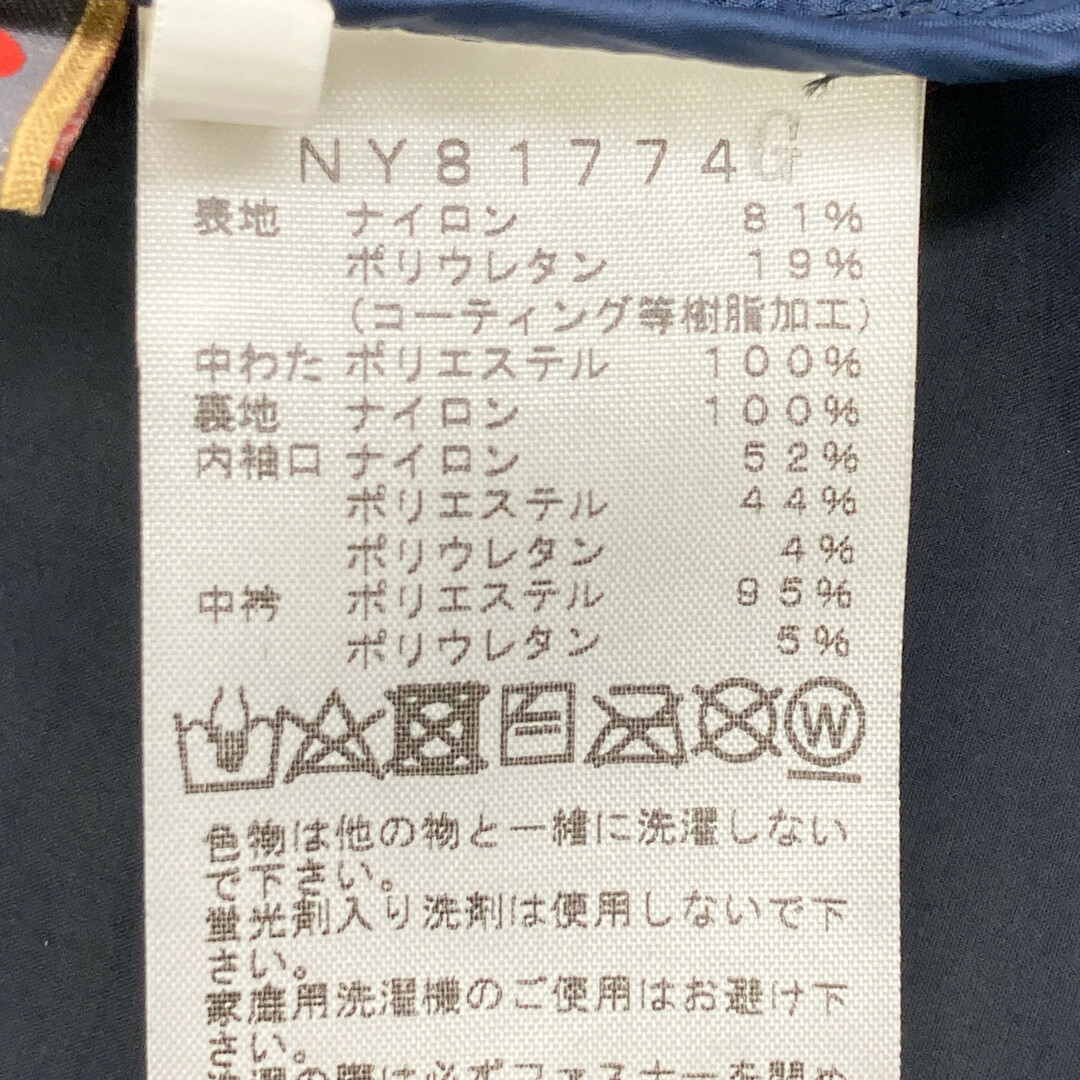 NY81774G
表地 ナイロン 81%
ポリウレタン 19%
(コーティング等樹脂加工)
中わた ポリエステル 100%
裏地 ナイロン 100%
内袖口 ナイロン 52%
ポリエステル 44%
ポリウレタン 4%
中衿 ポリエステル 95%
ポリウレタン 5%
W
色物は他の物と一緒に洗濯しない
で下さい。
蛍光剤入り洗剤は使用しないで下
さい。
家庭用洗濯機のご使用はお避け下
さい。
の際は必ずファスナーを閉め